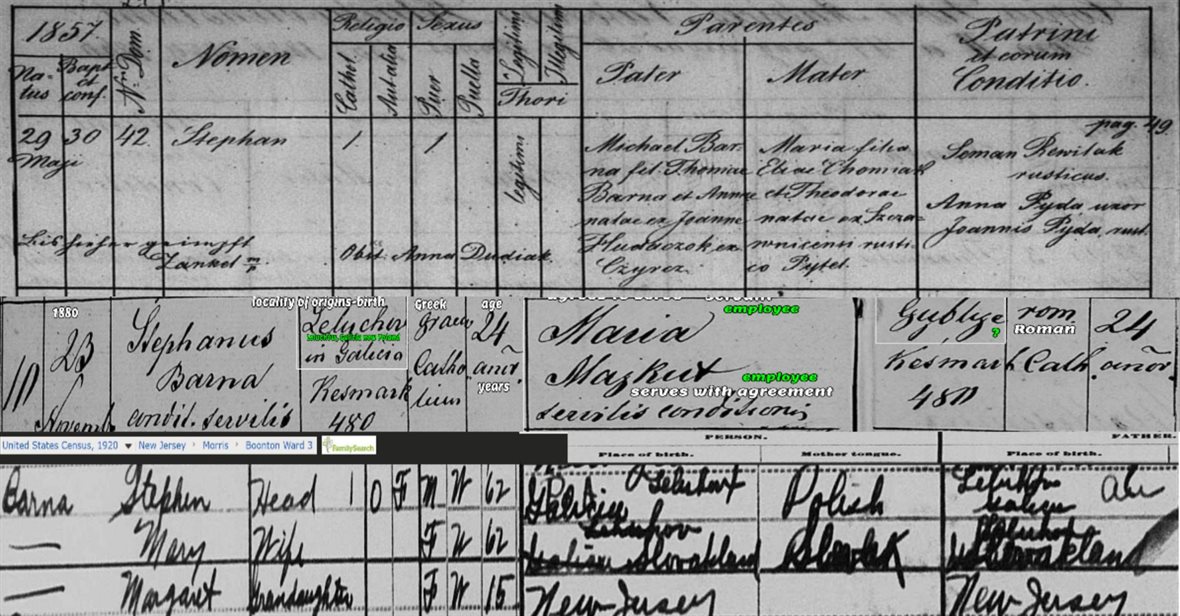 1857.
Na-
tus
Bapt.
et
conf.
Nrus Dom.
Nomen
Religio
Cathol.
Sexus
Puer
Puella
Legitimi
Illegitimi
Thori
Parentes
Pater
Mater
Patrini
et eorum
Conditio.
pag. 49.
29 30 42. Stephan 1 1 legitimi
Maji
Michael Bar-
na fil. Thomae
Barna et Annae
natae ex Joanne
Hudaczok ex
Czyrez.
Maria filia
Eliae Chomiak
et Theodorae
natae ex Szcza-
wnicenti rusti-
co Pytel.
Seman Rewilak
rusticus.
Anna Pyda uxor
Joannis Pyda, rust.
Bis hieher geimpft
Zankel mp
Obst. Anna Dudiak.
1880
locality of origins-birth
Greek
age
servant
employee
10
23
Novemb
Stephanus
Barna
condit. servilis
Leluchov
in Galicia
Kesmark
480
Graeco
Catho
licus
24
annor.
years
Maria
Mazkut
employee
serves with agreement
servilis conditionis
Gyblye
?
Kesmark
480
rom
Roman
Cath.
24
annor.
United States Census, 1920 New Jersey Morris Boonton Ward 3 FamilySearch
PERSON.
FATHER.
Place of birth.
Mother tongue.
Place of birth.
Barna Stephen Head 1 O F M W 62 Galicia Polish Galicia
— Mary Wife F W 62 Slovakland Slovak Slovakland
— Margaret Grandaughter F W 15 New Jersey New Jersey